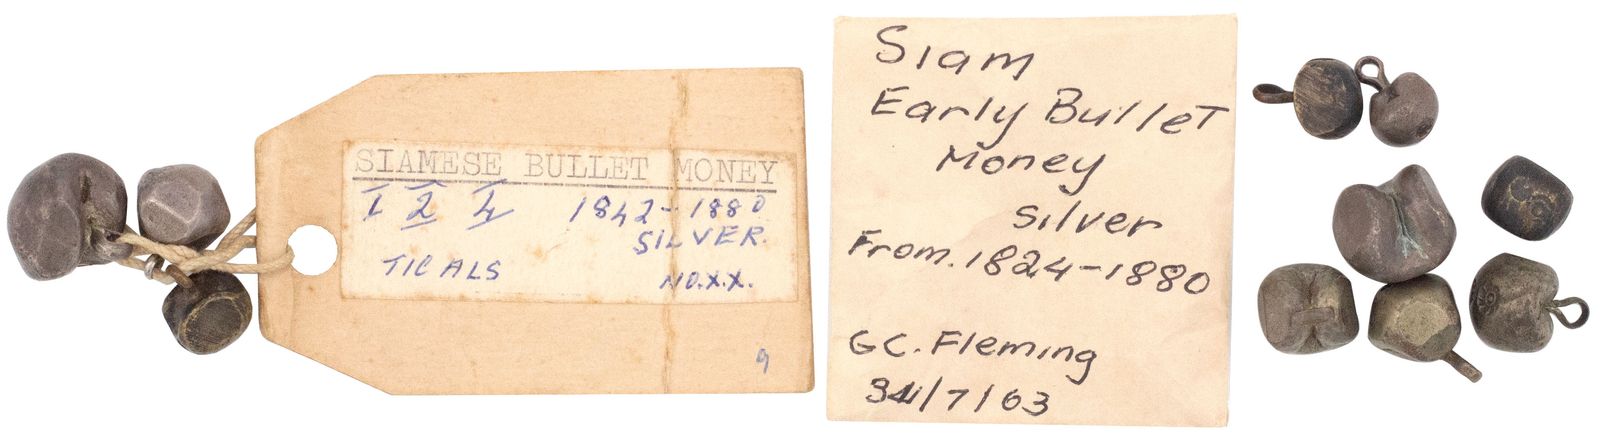 SIAMESE BULLET MONEY
1 2 4 1842-1880
SILVER.
TICALS NO.X.X.
9
Siam
Early Bullet
Money
Silver
From. 1824-1880
GC. Fleming
/7/63